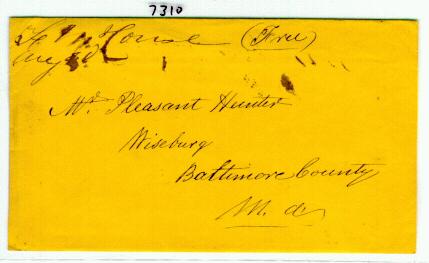 7310
House (Free)
Mr. Pleasant Hunter
Wiseburg
Baltimore County
M. d